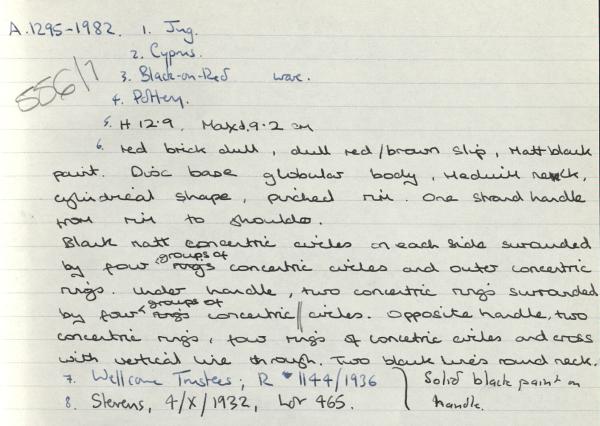 A.1295-1982. 1. Jug.
2. Cyprus.
556/1
3. Black-on-Red ware.
4. Pottery.
5. H 12.9, Maxd. 9.2 cm
6. red brick dull, dull red/brown slip, Matt black
paint. Disc base globular body, Medium neck,
cylindrical shape, pinched rim. One strand handle
from rim to shoulder.
Black matt concentric circles on each side surounded
by four groups of concentric circles and outer concentric
rings. Under handle, two concentric rings surrounded
by four groups of concentric circles. Opposite handle, two
concentric rings, four rings of concentric circles and cross
with vertical line through. Two black lines round neck.
7. Wellcome Trustees; R 1144/1936
8. Stevens, 4/X/1932, Lot 465.
Solid black paint on
handle.